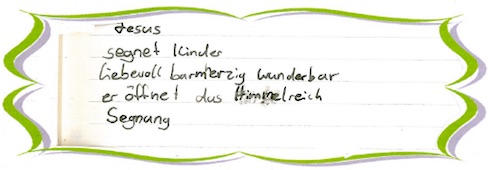 Jesus
segnet Kinder
liebevoll barmherzig wunderbar
er öffnet das Himmelreich
Segnung